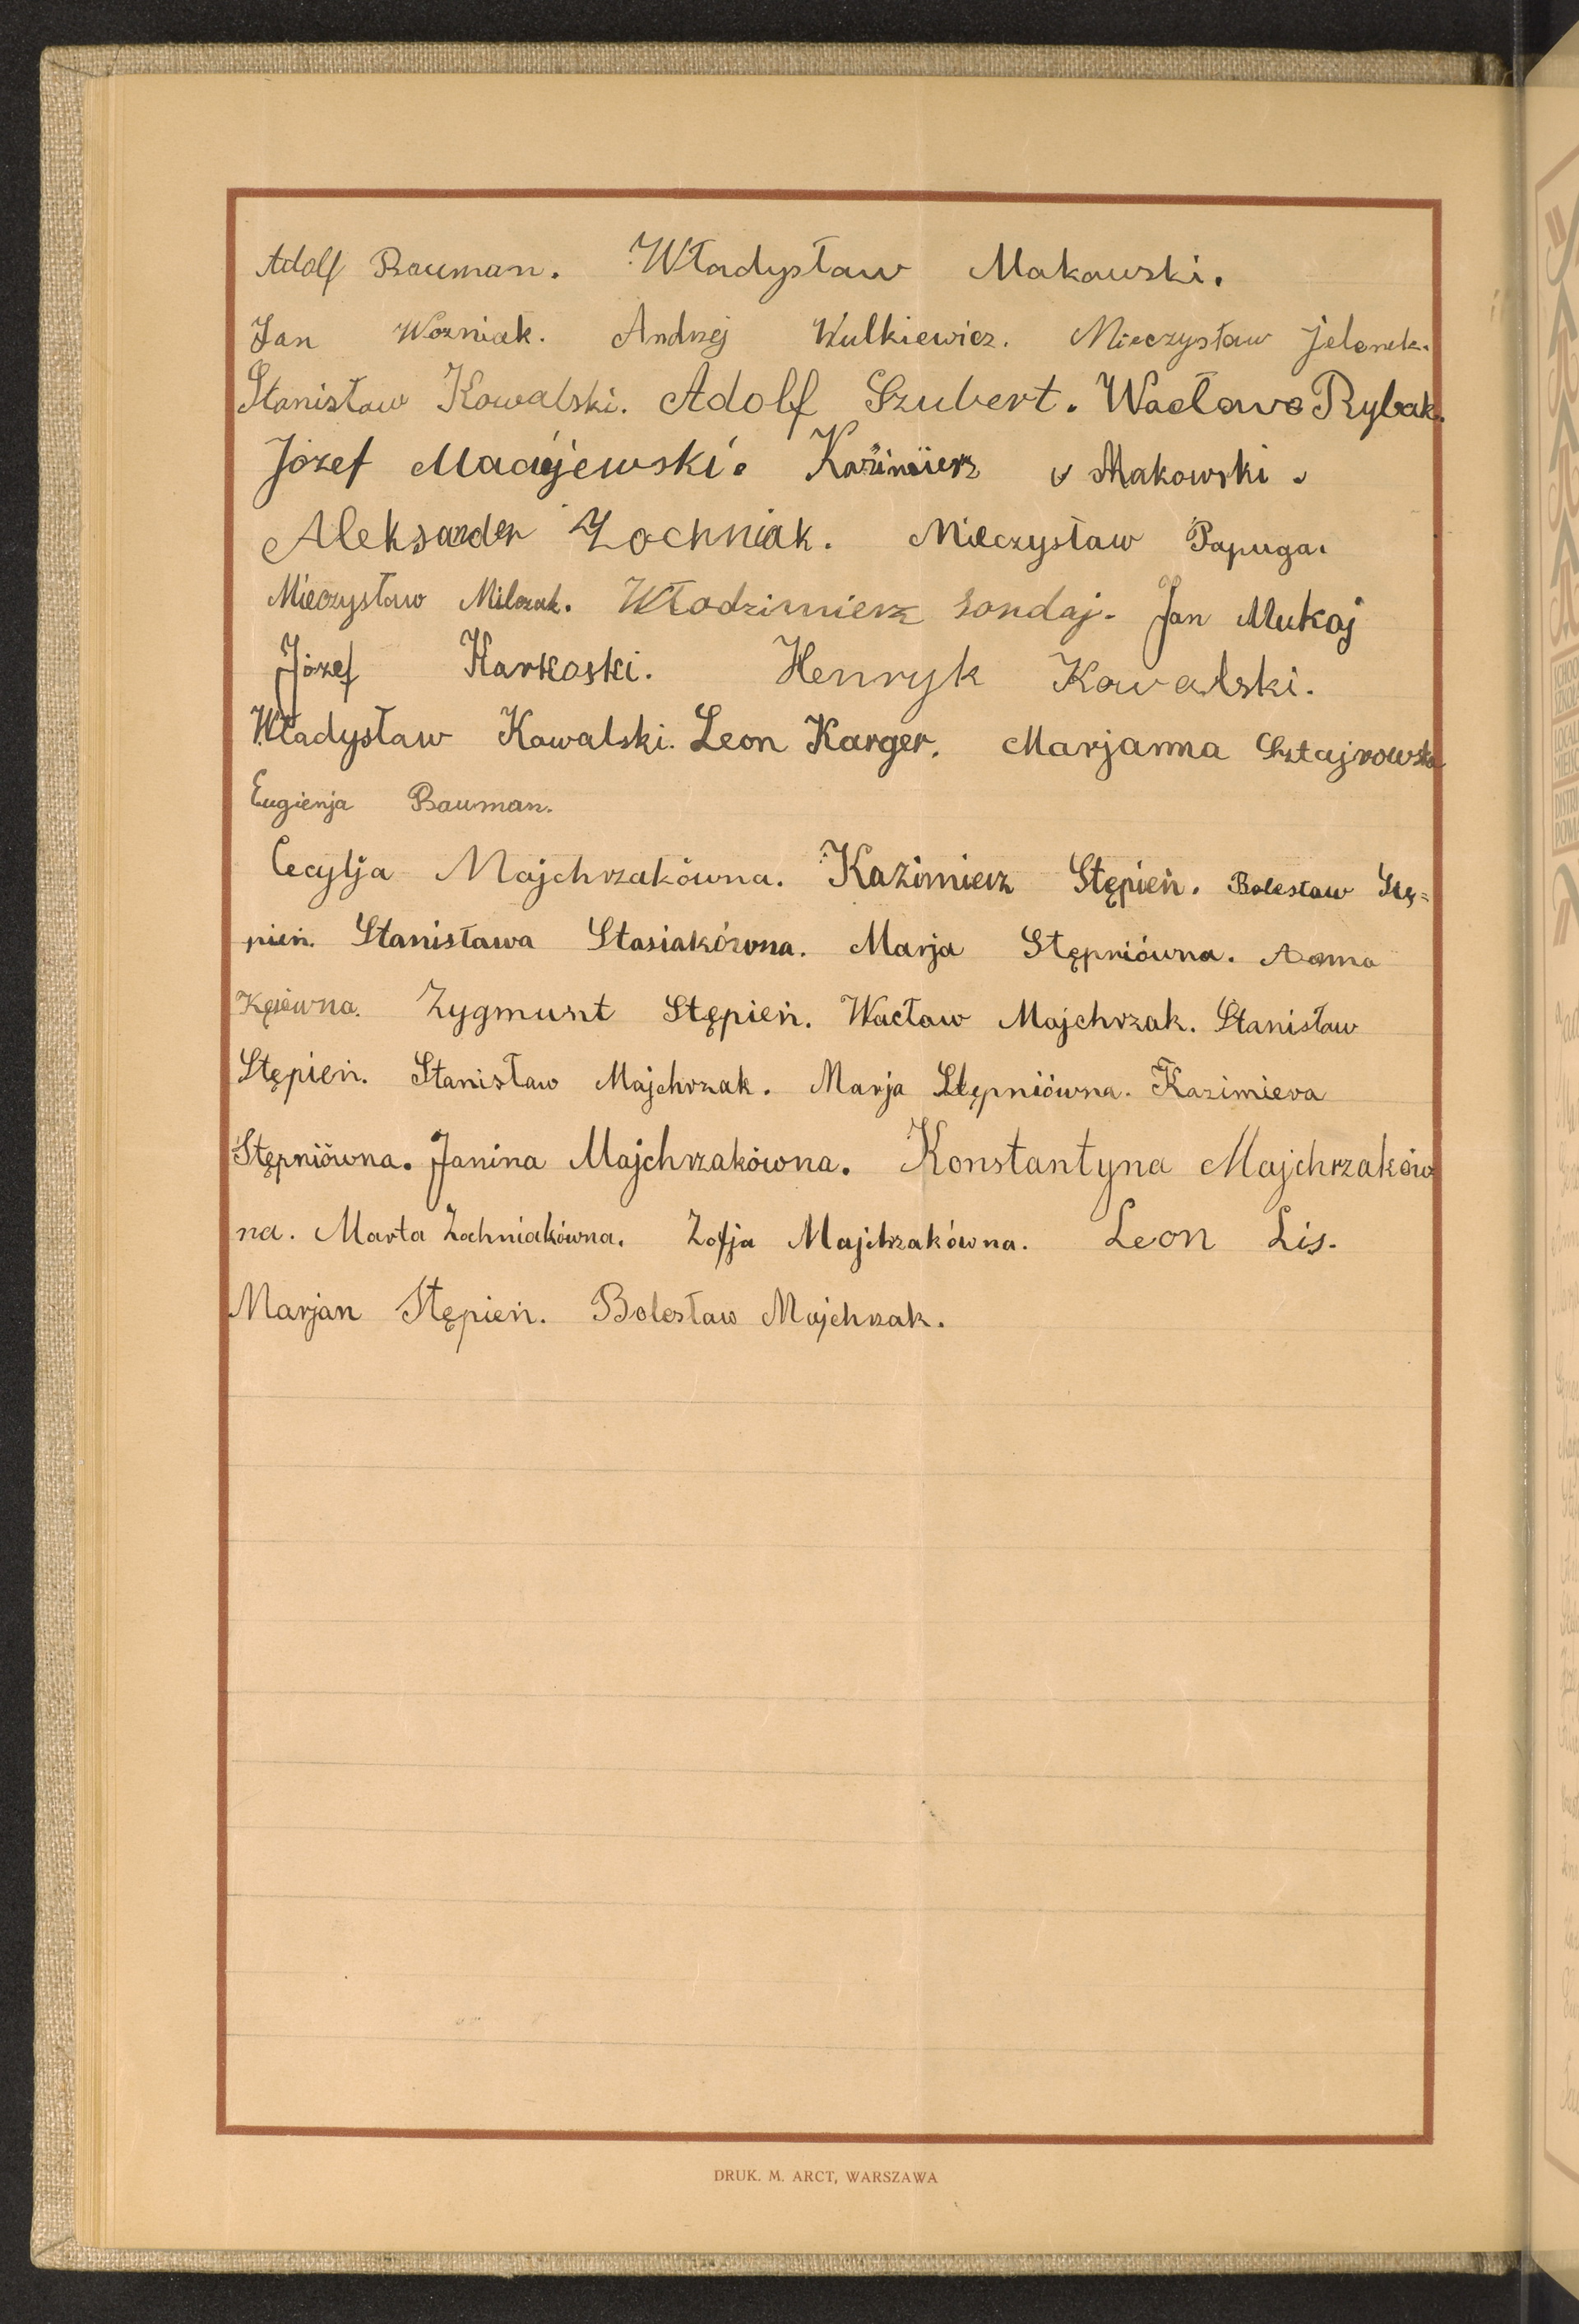 Adolf Bauman. Władysław Makowski.
Jan Wozniak. Andrzej Wulkiewicz. Mieczysław Jelonek.
Stanisław Kowalski. Adolf Szubert. Wacława Rybak.
Józef Maciejewski. Kazimierz Makowski.
Aleksander Zochniak. Mieczysław Papuga.
Mieczysław Milczak. Włodzimierz Sondaj. Jan Mukaj
Józef Karkoski. Henryk Kowalski.
Władysław Kowalski. Leon Karger. Marjanna Sztajrowska
Eugienja Bauman.
Cecylja Majchrzakówna. Kazimierz Stępień. Bolesław Stę=
pień. Stanisława Stasiakówna. Marja Stępniówna. Anna
Zygmunt Stępień. Wacław Majchrzak. Stanisław
Stępień. Stanisław Majchrzak. Marja Stępniówna. Kazimiera
Stępniówna. Janina Majchrzakówna. Konstantyna Majchrzaków
na. Marta Zochniakówna. Zofja Majchrzakówna. Leon Lis.
Marjan Stępień. Bolesław Majchrzak.
DRUK. M. ARCT, WARSZAWA